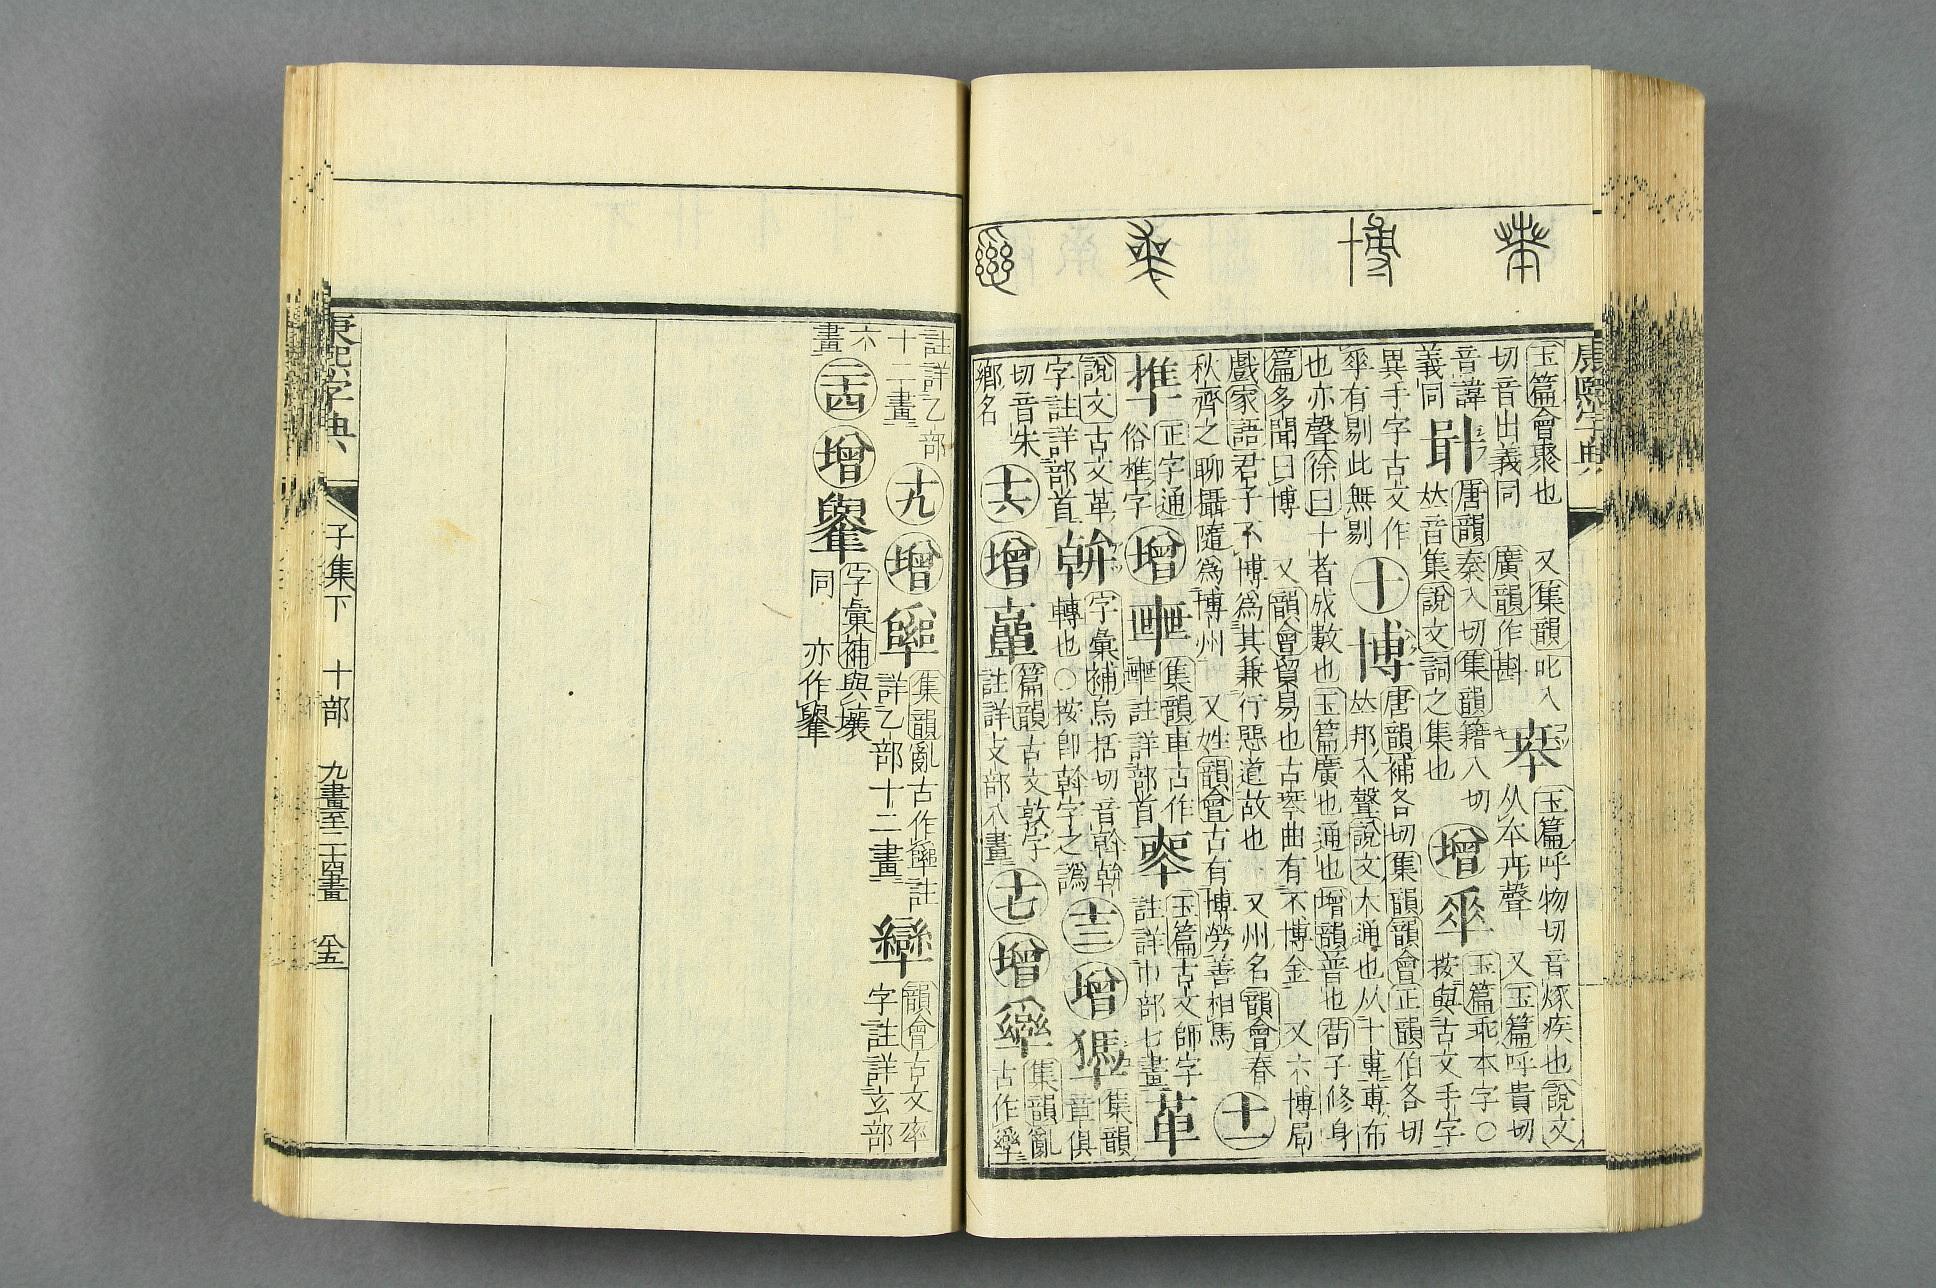 康熙字典
玉篇會聚也 又集韻叱入
切音出義同 廣韻作斟
玉篇呼物切音烼疾也說文
从夲卉聲 又玉篇呼貴切
音諱
義同
唐韻秦入切集韻籍入切
𠀤音集說文詞之集也
增
玉篇乖本字○
按與古文手字
異手字古文作
𠦬有剔此無剔
十
博
唐韻補各切集韻韻會正韻伯各切
𠀤邦入聲說文大通也从十尃尃布
也亦聲徐曰十者成數也玉篇廣也通也增韻普也荀子修身
篇多聞曰博 又韻會貿易也古琴曲有不博金 又六博局
戲家語君子不博爲其兼行惡道故也 又州名韻會春
秋齊之聊攝隨爲博州 又姓韻會古有博勞善相馬
十一
榫
正字通
俗榫字
增
集韻車古作
註詳部首
玉篇古文師字
註詳巾部七畫
革
說文古文革
字註詳部首
字彙補烏括切音斡
轉也○按卽斡字之譌
十二
增
集韻
章俱
切音朱
鄉名
十六
增
篇韻古文敦字
註詳攴部八畫
十七
增
集韻亂
古作
註詳乙部
十二畫
十九
增
集韻亂古作
註
詳乙部十二畫
韻會古文率
字註詳玄部
六
畫
二十四
增
字彙補與壤
同 亦作
康熙字典
子集下
十部
九畫至二十四畫
八十五